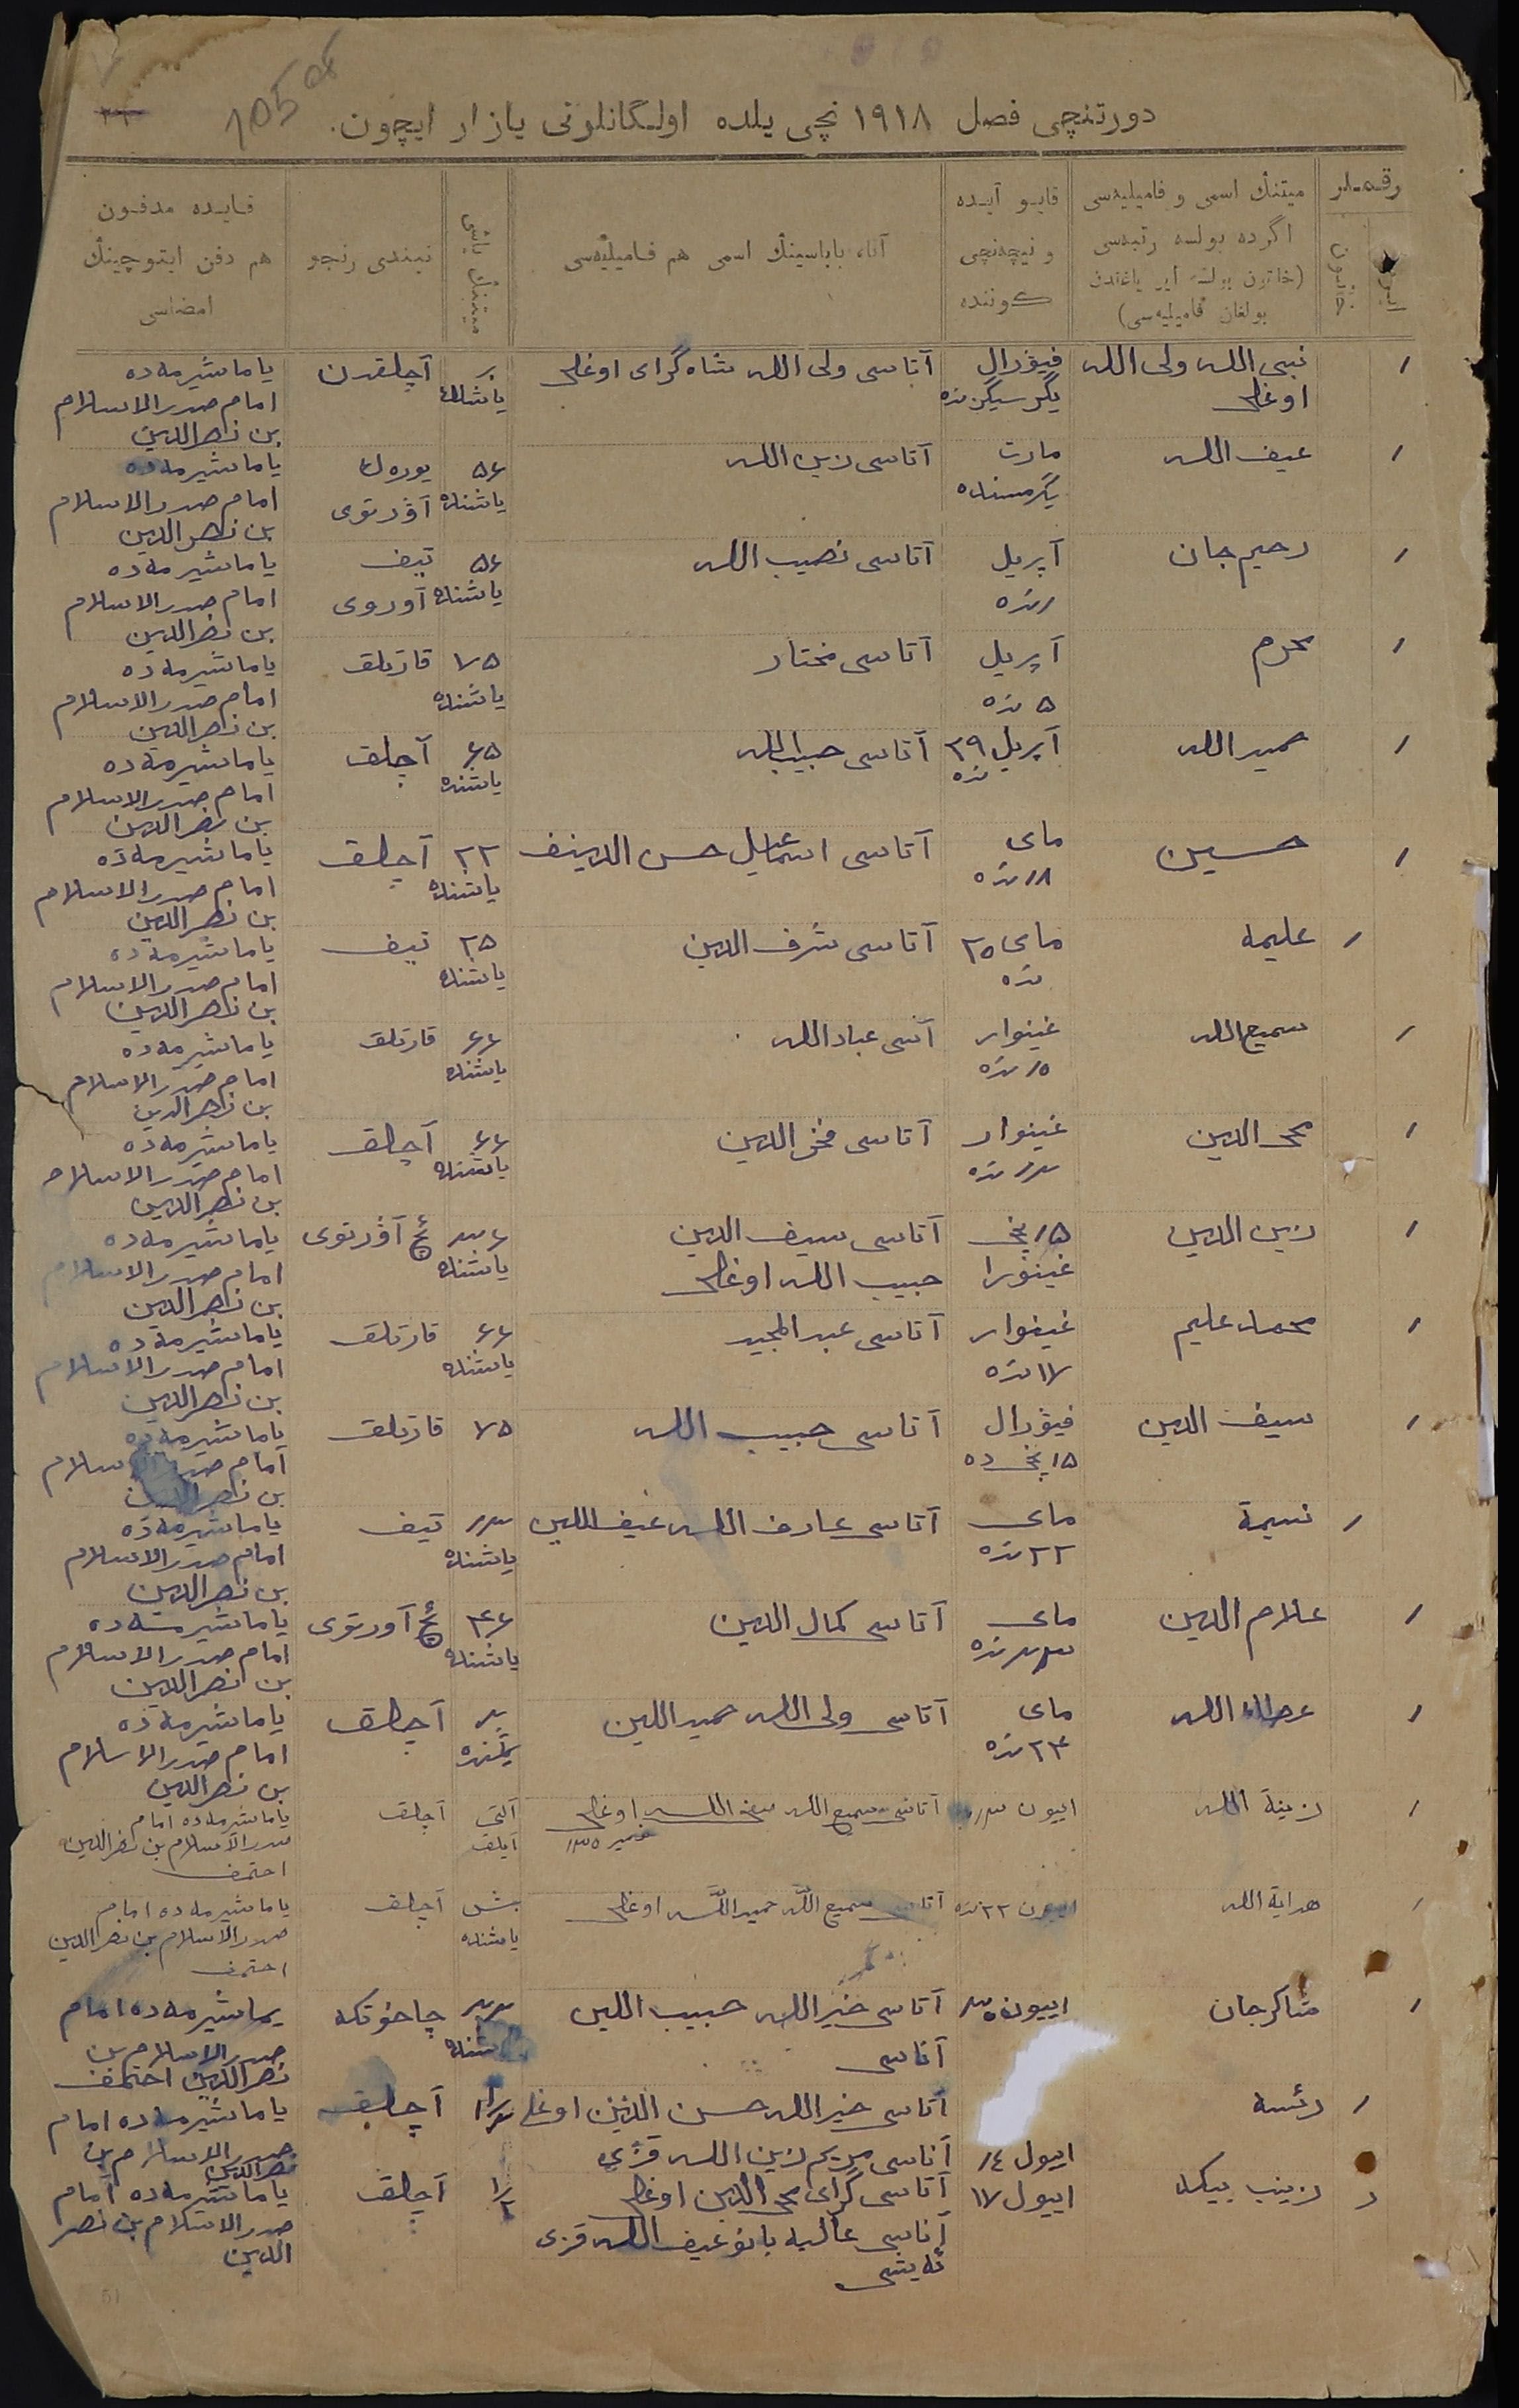 105 об
دورتنچی فصل ۱۹۱۸ نچی یلده اولگانلرنی یازار ایچون.
رقـمـلر
میتنڭ اسمی و فامیلیه‌سی
اگرده بولسه رتبه‌سی
(خاتون بولسه ایر یاغندن
بولغان فامیلیه‌سی)
قایـو آیـده
و نیچه‌نچی
کـوننده
آتا، باباسینڭ اسمی هم فـامیلیه‌سی
میتنڭ یاشی
نیندی رنجو
قـایـده مدفـون
هم دفن ایتوچینڭ
امضـاسی
۱ نبی الله ولی الله اوغلی
فیۋرال یگرسیگزنده
آتاسی ولی الله شاه گرای اوغلی
بر یاشلك
آچلقدن
یاماشیرمه‌ده امام صدرالاسلام بن نصرالدین
۱ عیف الله
مارت یگرمسنده
آتاسی زین الله
۵۶ یاشنده
یوره‌ك آۋرتوی
یاماشیرمه‌ده امام صدرالاسلام بن نصرالدین
۱ رحیم جان
آپریل ۱ نده
آتاسی نصیب الله
۵۶ یاشنده
تیف آوروی
یاماشیرمه‌ده امام صدرالاسلام بن نصرالدین
۱ محرم
آپریل ۵ نده
آتاسی مختار
۷۵ یاشنده
قارتلق
یاماشیرمه‌ده امام صدرالاسلام بن نصرالدین
۱ حمیدالله
آپریل ۲۹ نده
آتاسی حبیب الله
۶۵ یاشنده
آچلق
یاماشیرمه‌ده امام صدرالاسلام بن نصرالدین
۱ حسین
مای ۱۸ نده
آتاسی اسماعیل حسن الدینف
۲۲ یاشنده
آچلق
یاماشیرمه‌ده امام صدرالاسلام بن نصرالدین
۱ علیمه
مای ۲۵ نده
آتاسی شرف الدین
۲۵ یاشنده
تیف
یاماشیرمه‌ده امام صدرالاسلام بن نصرالدین
۱ سمیع الله
غینوار ۱۵ نده
آتسی عباد الله
۶۶ یاشنده
قارتلق
یاماشیرمه‌ده امام صدرالاسلام بن نصرالدین
۱ محی الدین
غینوار ۱۳ نده
آتاسی فخر الدین
۶۶ یاشنده
آچلق
یاماشیرمه‌ده امام صدرالاسلام بن نصرالدین
۱ زین الدین
۱۵ نچی غینۋرا
آتاسی سیف الدین حبیب الله اوغلی
۳۶ یاشنده
ئچ آۋرتوی
یاماشیرمه‌ده امام صدرالاسلام بن نصرالدین
۱ محمد علیم
غینوار ۱۷ نده
آتاسی عبد المجید
۶۶ یاشنده
قارتلق
یاماشیرمه‌ده امام صدرالاسلام بن نصرالدین
۱ سیف الدین
فیۋرال ۱۵ نچی ده
آتاسی حبیب الله
۷۵
قارتلق
یاماشیرمه‌ده امام صدرالاسلام بن نصرالدین
۱ نسیمة
مای ۲۲ نده
آتاسی عارف الله عیف اللین
۱۳ یاشنده
تیف
یاماشیرمه‌ده امام صدرالاسلام بن نصرالدین
۱ علام الدین
مای ۲۳ نده
آتاسی کمال الدین
۴۶ یاشنده
ئچ آورتوی
یاماشیرمه‌ده امام صدرالاسلام بن نصرالدین
۱ عطاء الله
مای ۲۴ نده
آتاسی ولی الله حمید اللین
بر
آچلق
یاماشیرمه‌ده امام صدرالاسلام بن نصرالدین
۱ زینة الله
اییون ۱۳
آتاسی سمیع الله اوغلی
آلتی آیلق
آچلق
یاماشیرمه‌ده امام صدرالاسلام بن نصرالدین احتمف
۱ هدایة الله
اییون ۲۲ نده
آتاسی سمیع الله حمید الله اوغلی
بش یاشنده
آچلق
یاماشیرمه‌ده امام صدرالاسلام بن نصرالدین احتمف
۱ شاکرجان
اییون ۳۰
آتاسی خیر الله حبیب اللین
آناسی
۳۳
چاخوتکه
یماشیرمه‌ده امام صدرالاسلام بن نصرالدین احتمف
۱ رئسه
اییول ۱۴
آتاسی خیر الله حسن الدین اوغلی
آناسی مریم زین الله قزی
آچلق
یاماشیرمه‌ده امام صدرالاسلام بن نصرالدین
زینب بیکه
اییول ۱۷
آتاسی گرای محی الدین اوغلی
آناسی عالیه بانو عیف الله قزی
۱/۲
آچلق
یاماشیرمه‌ده امام صدرالاسلام بن نصر الدین